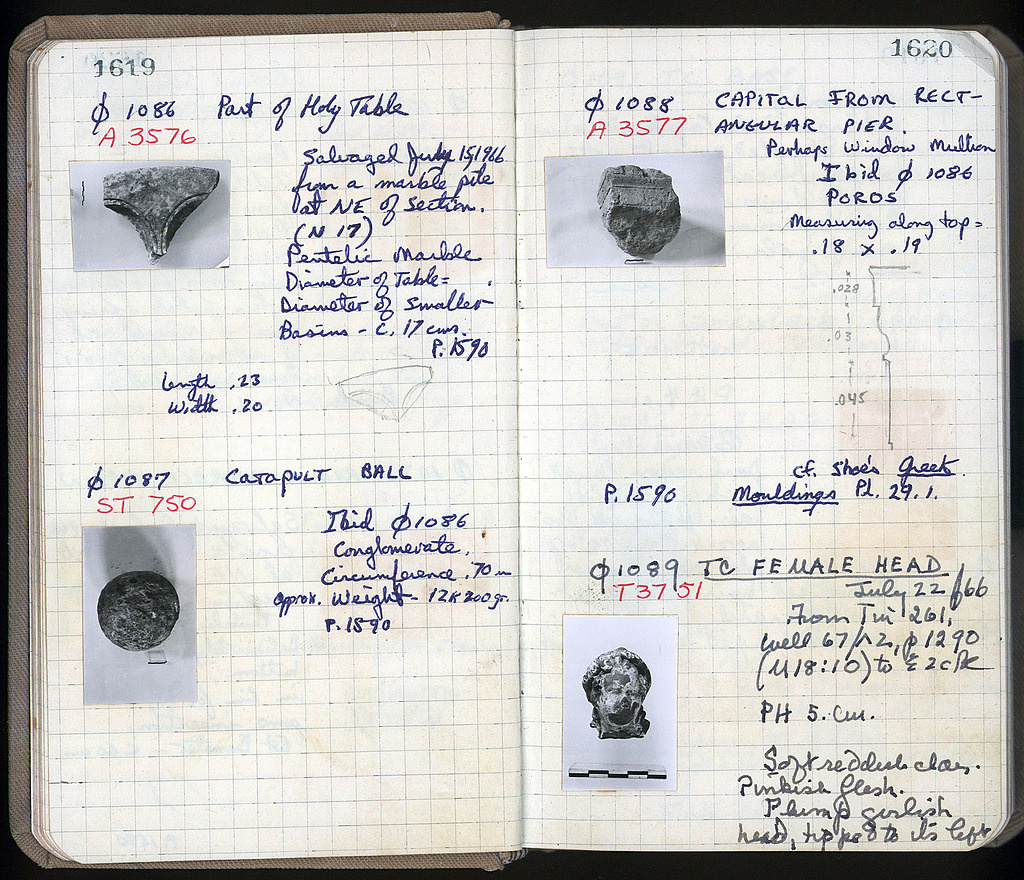 1619
φ 1086 Part of Holy Table
A 3576
Salvaged July 15, 1966
from a marble pile
at NE of Section.
(N 17)
Pentelic Marble
Diameter of Table=
Diameter of Smaller
Basins - c. 17 cms.
P. 1590
Length .23
Width .20
φ 1087 CATAPULT BALL
ST 750
Ibid φ1086
Conglomerate.
Circumference .70 m
Approx. Weight - 12K200gr.
P. 1590
1620
φ 1088 CAPITAL FROM RECT-
A 3577 ANGULAR PIER.
Perhaps Window Mullion
Ibid φ 1086
POROS
Measuring along top=
.18 x .19
.028
.03
.045
cf. Shoe's Greek
P. 1590 Mouldings Pl. 29.1.
φ 1089 TC FEMALE HEAD
T3751
July 22/66
From Tin 261,
Well 67/
(M18:10) to
PH 5. cm.
Soft reddish clay.
Pinkish flesh.
Plump girlish
head, tipped to its left